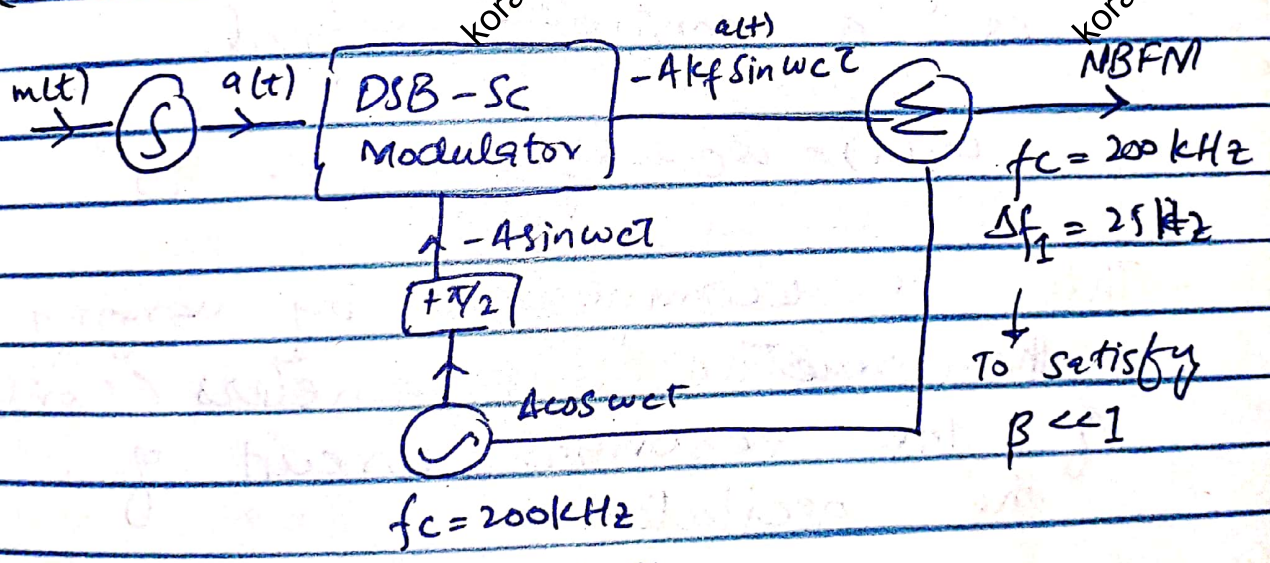 kora
kora
m(t)
∫
a(t)
DSB-SC
Modulator
a(t)
-Akf sin wct
Σ
NBFM
fc = 200 kHz
Δf1 = 25 Hz
To satisfy
β <<1
-Asinwct
+π/2
Acoswct
fc = 200kHz